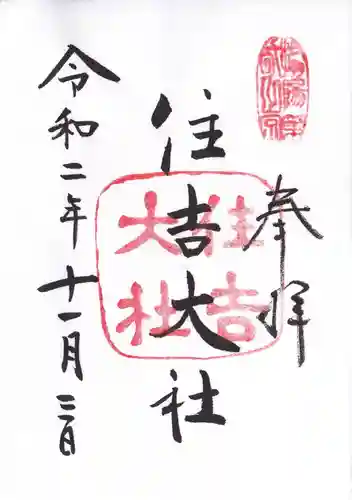 奉拝
住吉大社
住吉大社
令和二年十一月三日